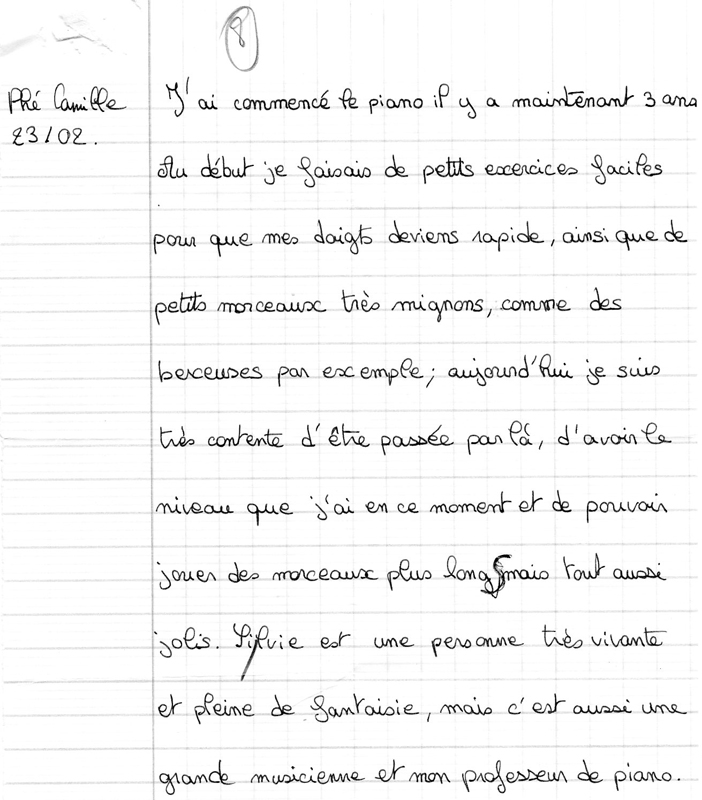 8
Phé Camille
23/02.
J'ai commencé le piano il y a maintenant 3 ans
Au début je faisais de petits excercices faciles
pour que mes doigts deviens rapide, ainsi que de
petits morceaux très mignons, comme des
berceuses par excemple; aujourd'hui je suis
très contente d'être passée par là, d'avoir le
niveau que j'ai en ce moment et de pouvoir
jouer des morceaux plus longs mais tout aussi
jolis. Sylvie est une personne très vivante
et pleine de fantaisie, mais c'est aussi une
grande musicienne et mon professeur de piano.